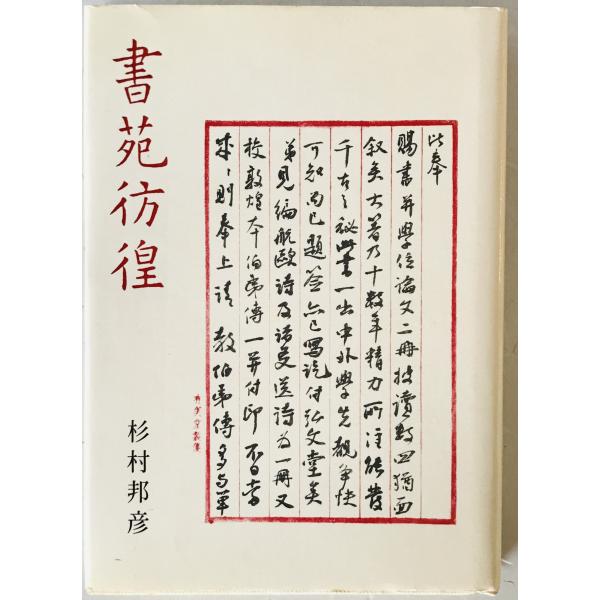 書苑彷徨
杉村邦彦
此奉
賜書并學位論文二冊披讀數四猶面
敘矣大著乃十數年精力所注能發
千古之祕此書一出中外學者先覩爭快
可知尚已題簽亦已寫訖付弘文堂矣
弟見編航歐詩及諸友送詩為一冊又
校敦煌本伯弟傳一并付印不日告
成、則奉上請教伯弟傳多与單